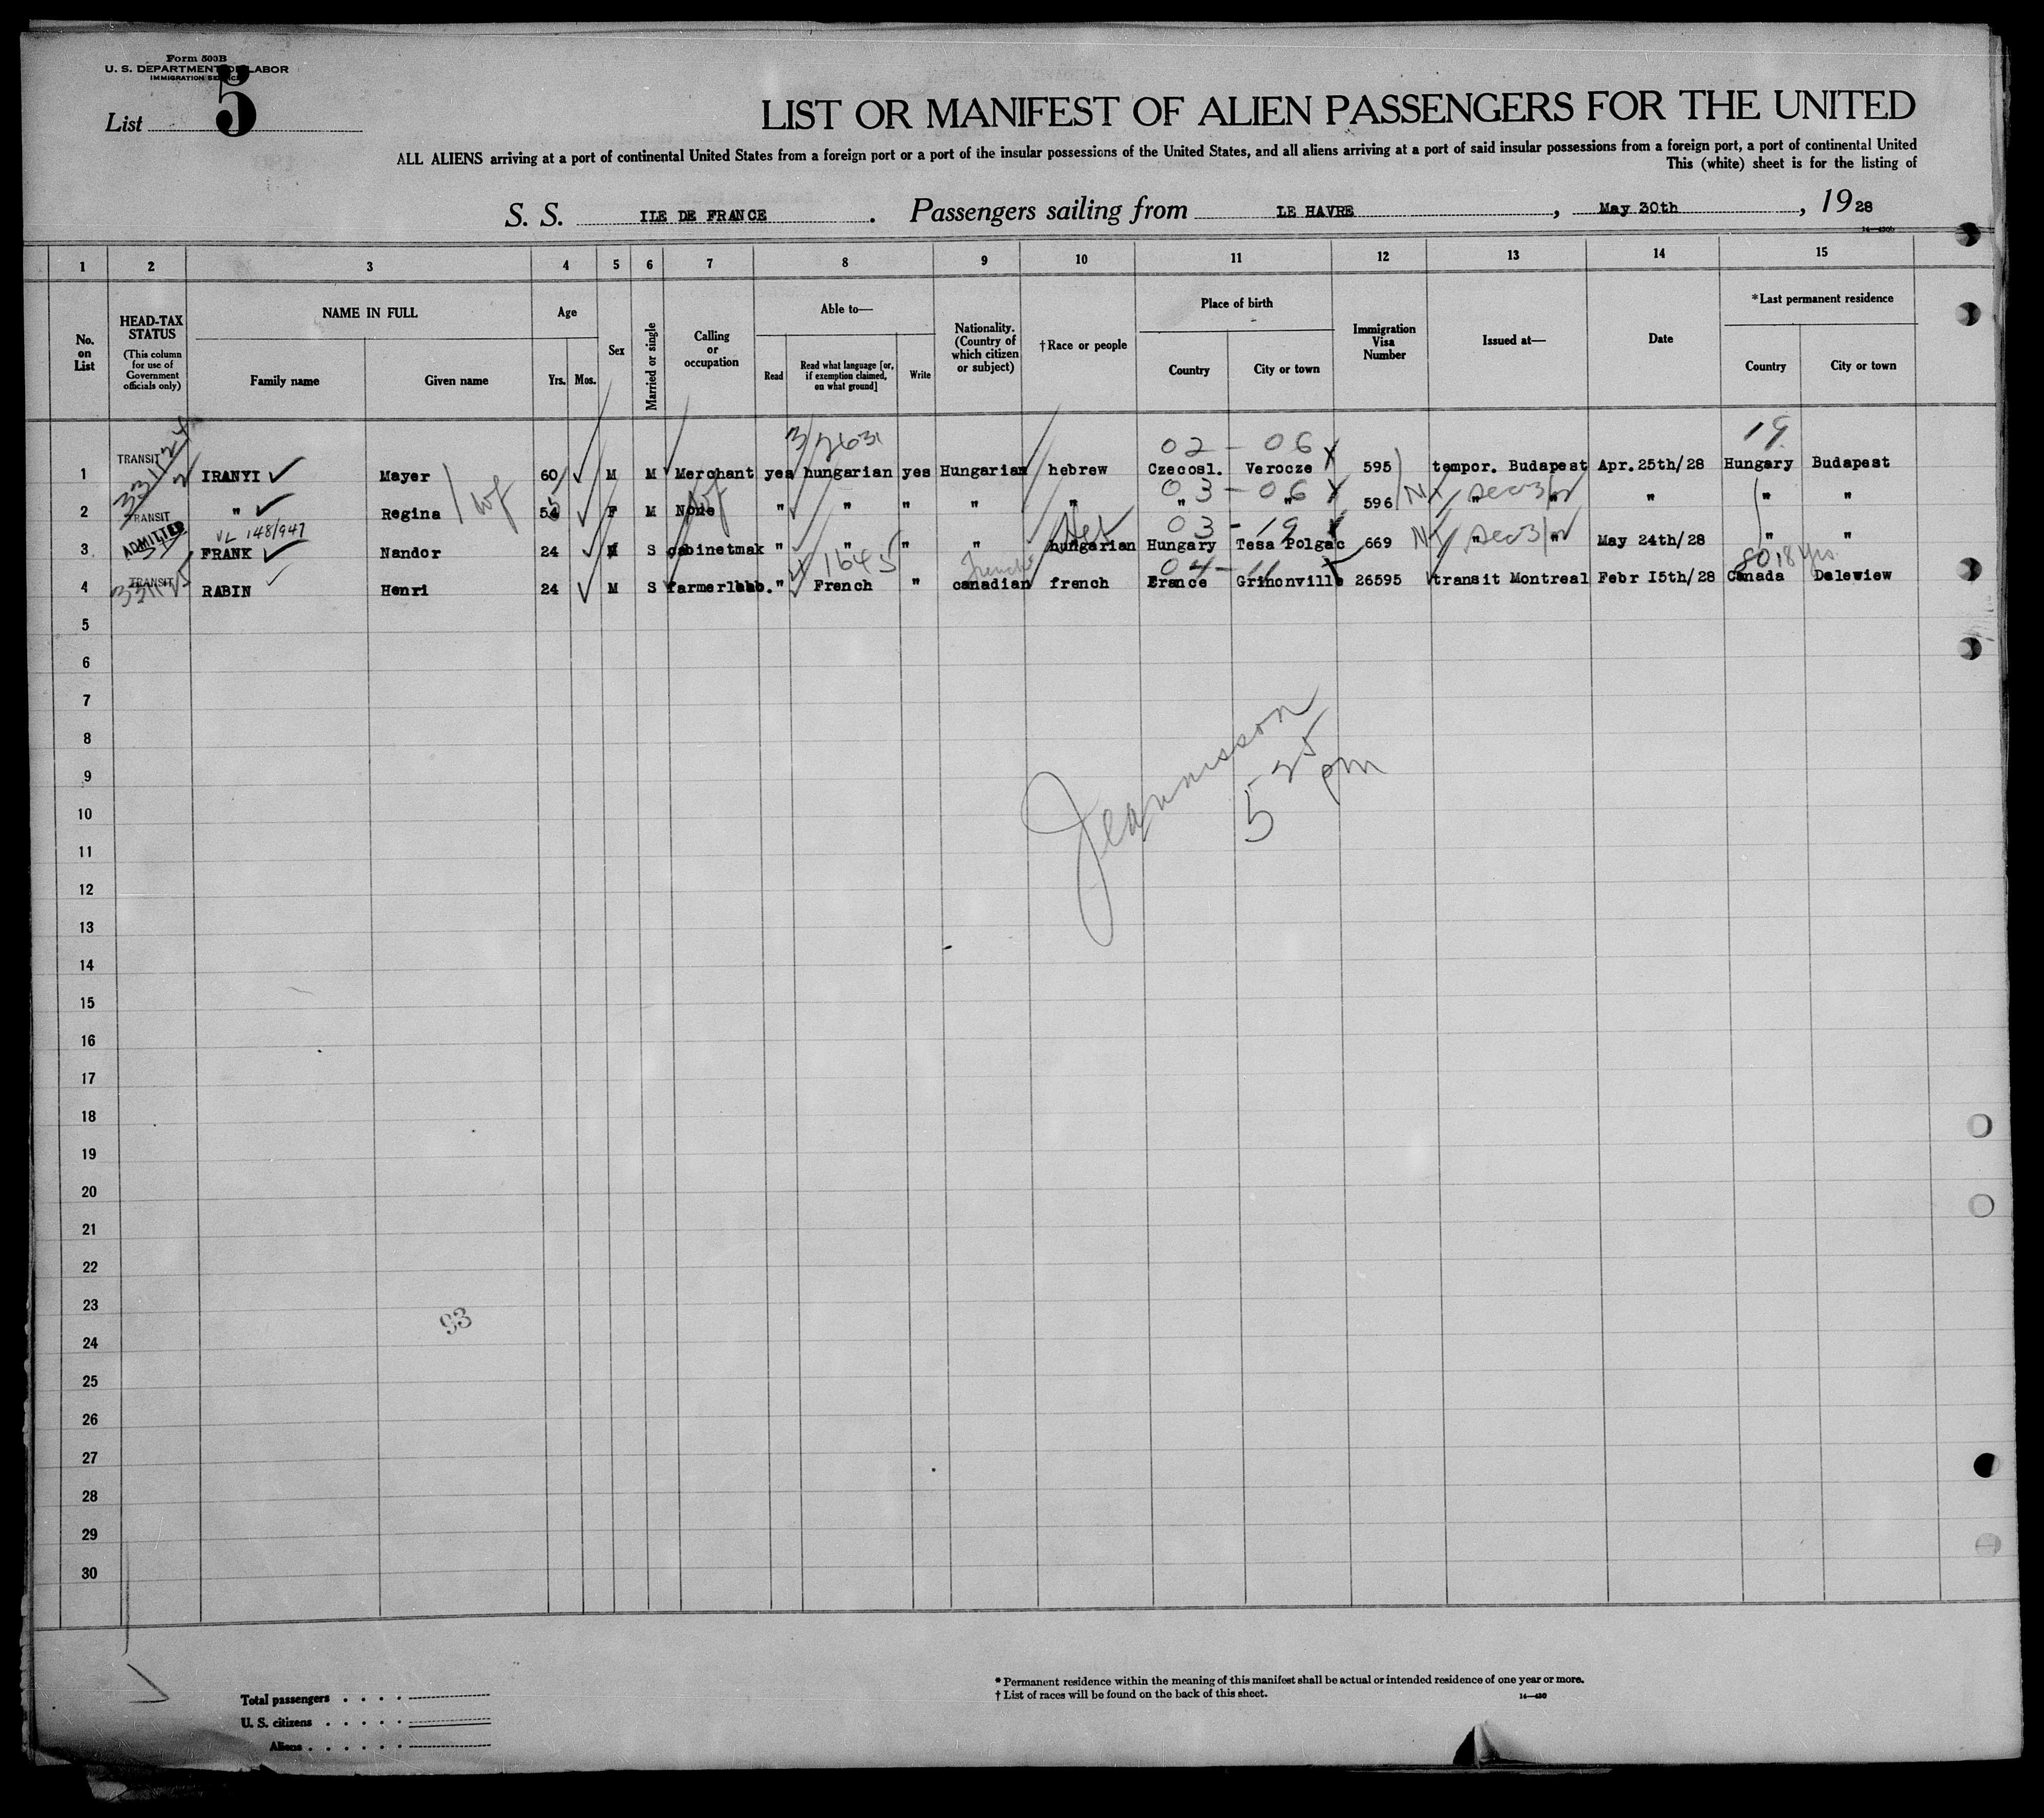 Form 500B
U. S. DEPARTMENT OF LABOR
IMMIGRATION SERVICE
List 5
LIST OR MANIFEST OF ALIEN PASSENGERS FOR THE UNITED
ALL ALIENS arriving at a port of continental United States from a foreign port or a port of the insular possessions of the United States, and all aliens arriving at a port of said insular possessions from a foreign port, a port of continental United
This (white) sheet is for the listing of
S. S. ILE DE FRANCE. Passengers sailing from LE HAVRE, May 30th, 1928
1 2 3 4 5 6 7 8 9 10 11 12 13 14 15
No. on List
HEAD-TAX STATUS (This column for use of Government officials only)
NAME IN FULL
Family name Given name
Age
Yrs. Mos.
Sex
Married or single
Calling or occupation
Able to—
Read Read what language [or, if exemption claimed, on what ground] Write
Nationality. (Country of which citizen or subject)
†Race or people
Place of birth
Country City or town
Immigration Visa Number
Issued at—
Date
*Last permanent residence
Country City or town
02 - 06 19
1 TRANSIT IRANYI Mayer 60 M M Merchant yes hungarian yes Hungarian hebrew Czecosl. Verocze 595 tempor. Budapest Apr.25th/28 Hungary Budapest
03 - 06
2 TRANSIT " Regina wf 54 F M None " " " " " " " 596 " " " " "
VL 148/947 03 - 19
3 ADMITTED FRANK Nandor 24 M S cabinetmak " " " " hungarian Hungary Tesa Polgac 669 " " May 24th/28 " "
1645 French 04 - 11
4 TRANSIT RABIN Henri 24 M S farmerlab. " French " canadian french France Grinonville 26595 transit Montreal Febr I5th/28 Canada Dalewiew
5
6
7
8
9
10
11
12
13
14
15
16
17
18
19
20
21
22
23
24
25
26
27
28
29
30
5 25 pm
93
* Permanent residence within the meaning of this manifest shall be actual or intended residence of one year or more.
† List of races will be found on the back of this sheet.
14—430
Total passengers
U. S. citizens
Aliens